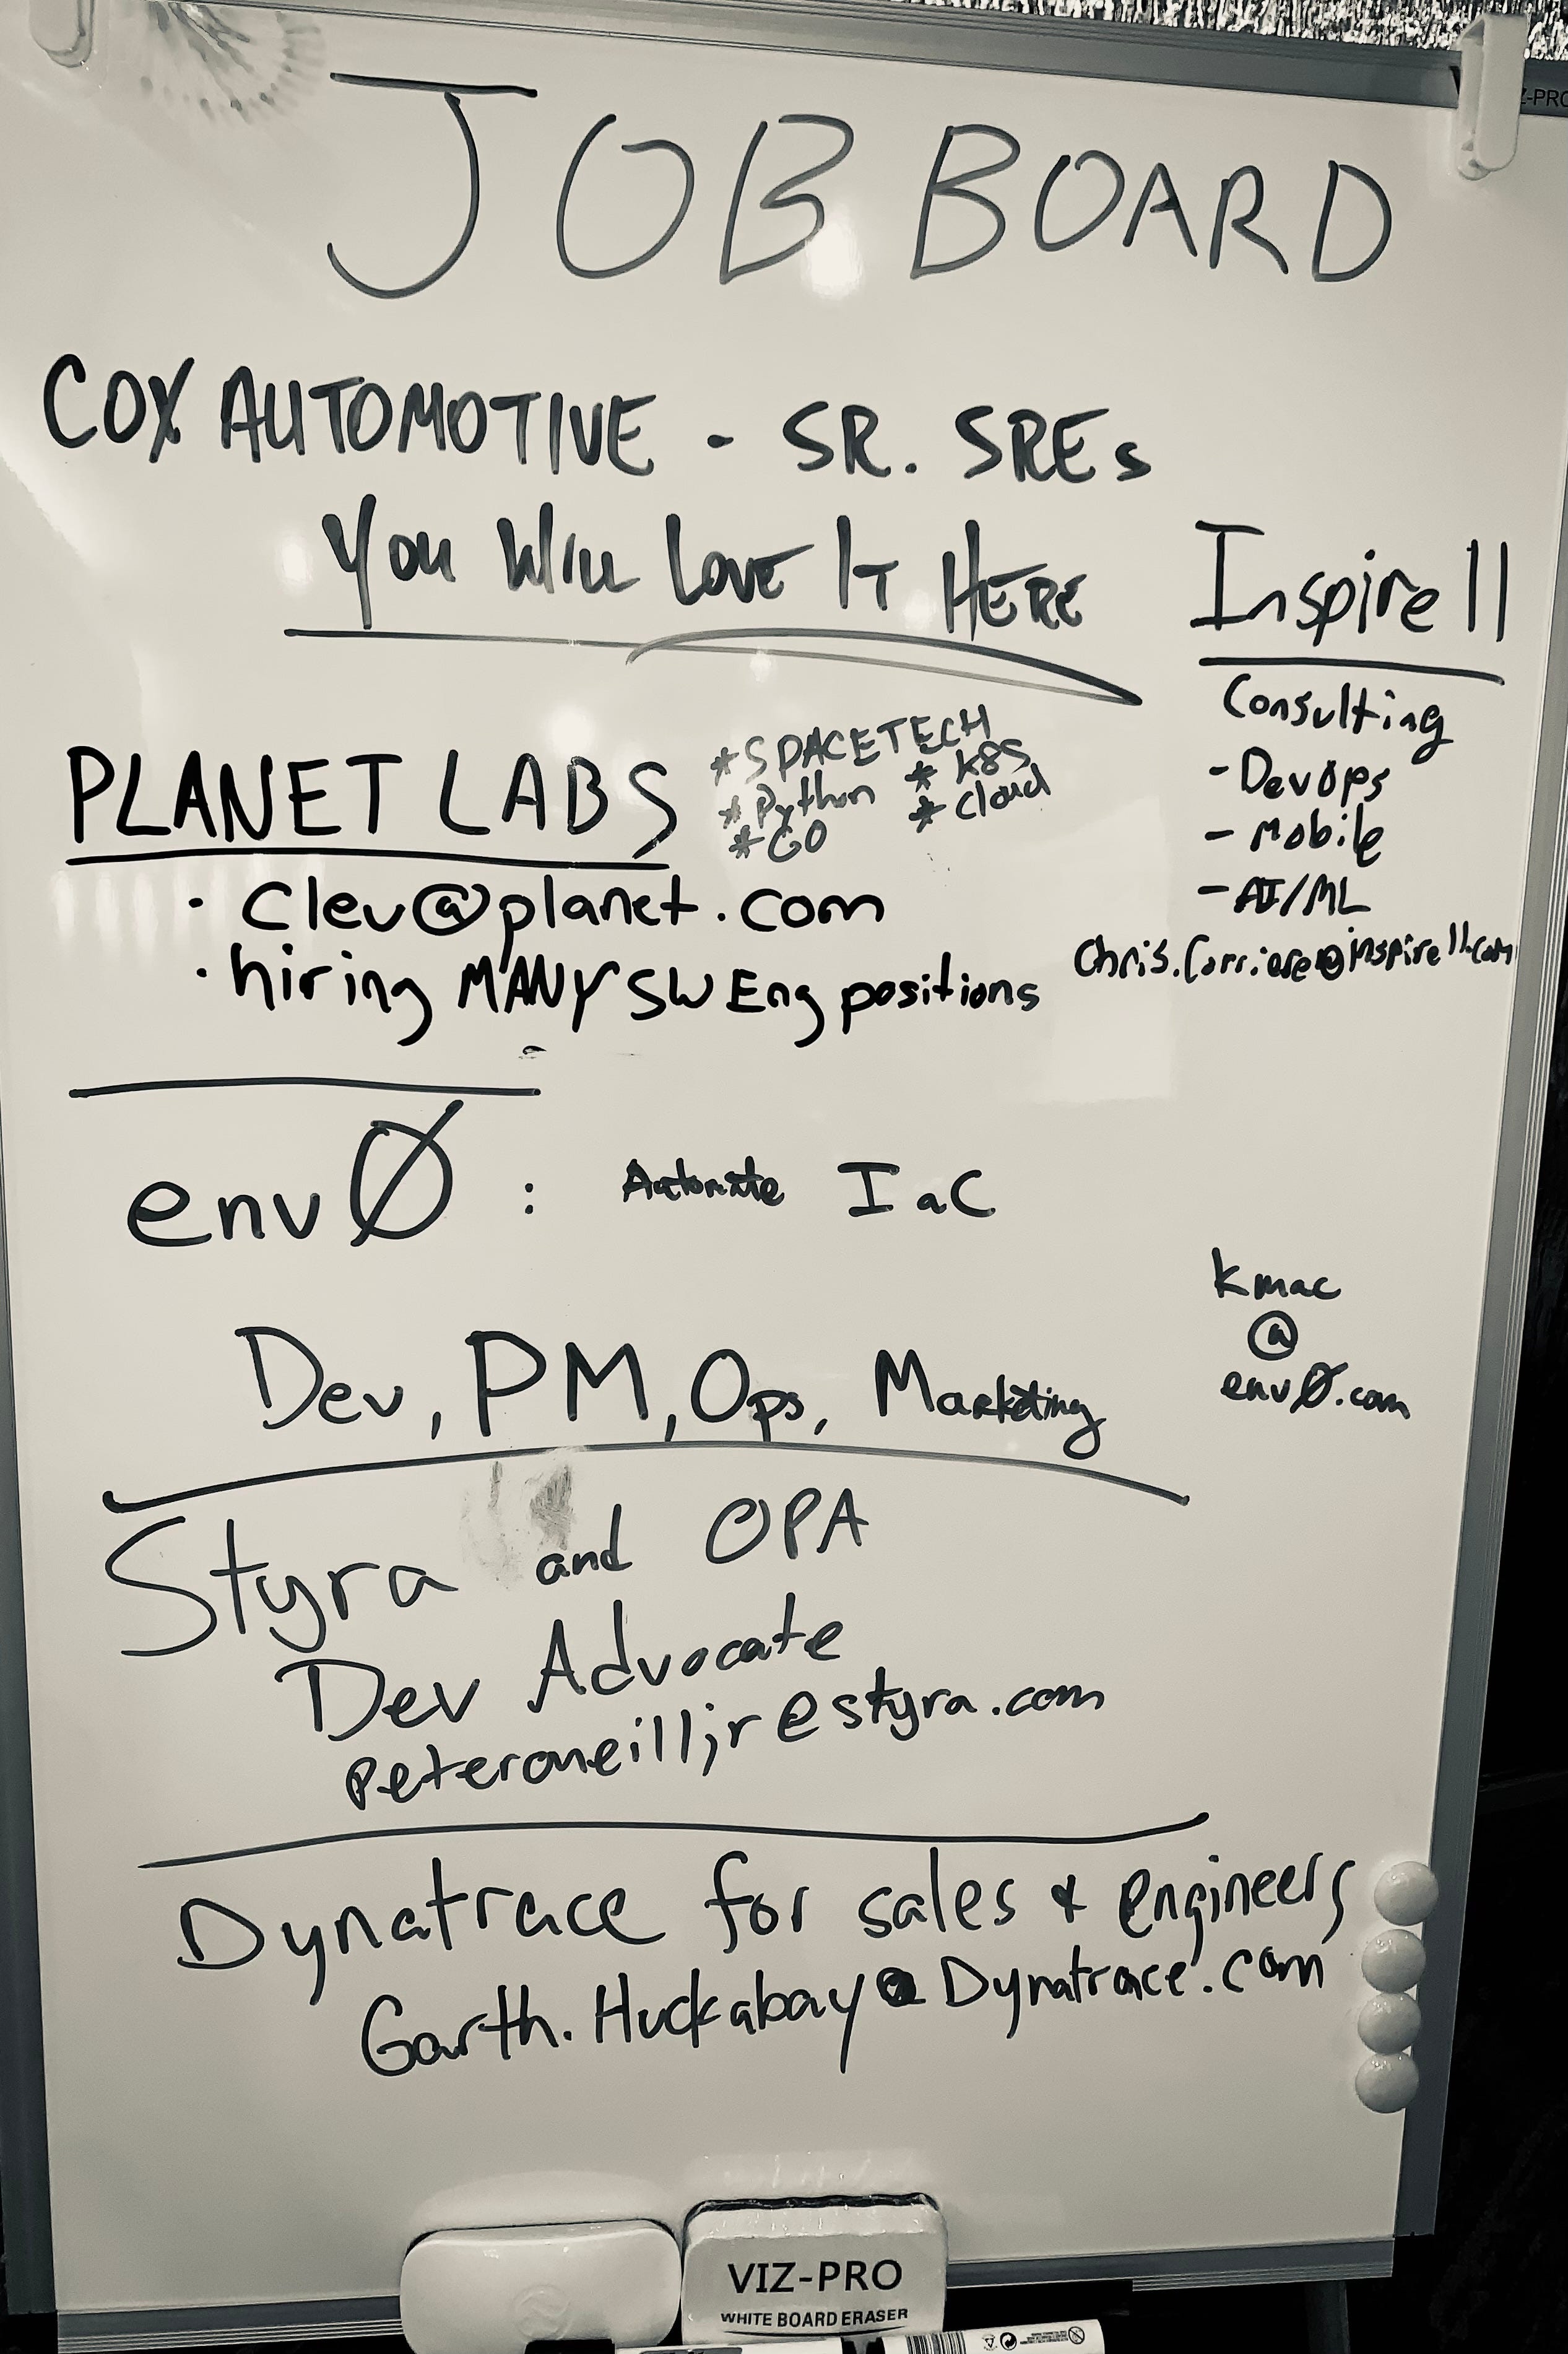 JOB BOARD
COX AUTOMOTIVE - SR. SREs
YOU WILL LOVE IT HERE
Inspire 11
Consulting
- DevOps
- Mobile
- AI/ML
Chris.Corriere@inspire11.com
PLANET LABS
* SPACETECH
* Python * K8S
* GO * Cloud
· Clev@planet.com
· hiring MANY SW Eng positions
envØ : Automate IaC
Dev, PM, Ops, Marketing
kmac
@
envØ.com
Styra and OPA
Dev Advocate
Peteroneilljr@styra.com
Dynatrace for sales & engineers
Garth.Huckabay@Dynatrace.com
VIZ-PRO
WHITE BOARD ERASER
Z-PRO